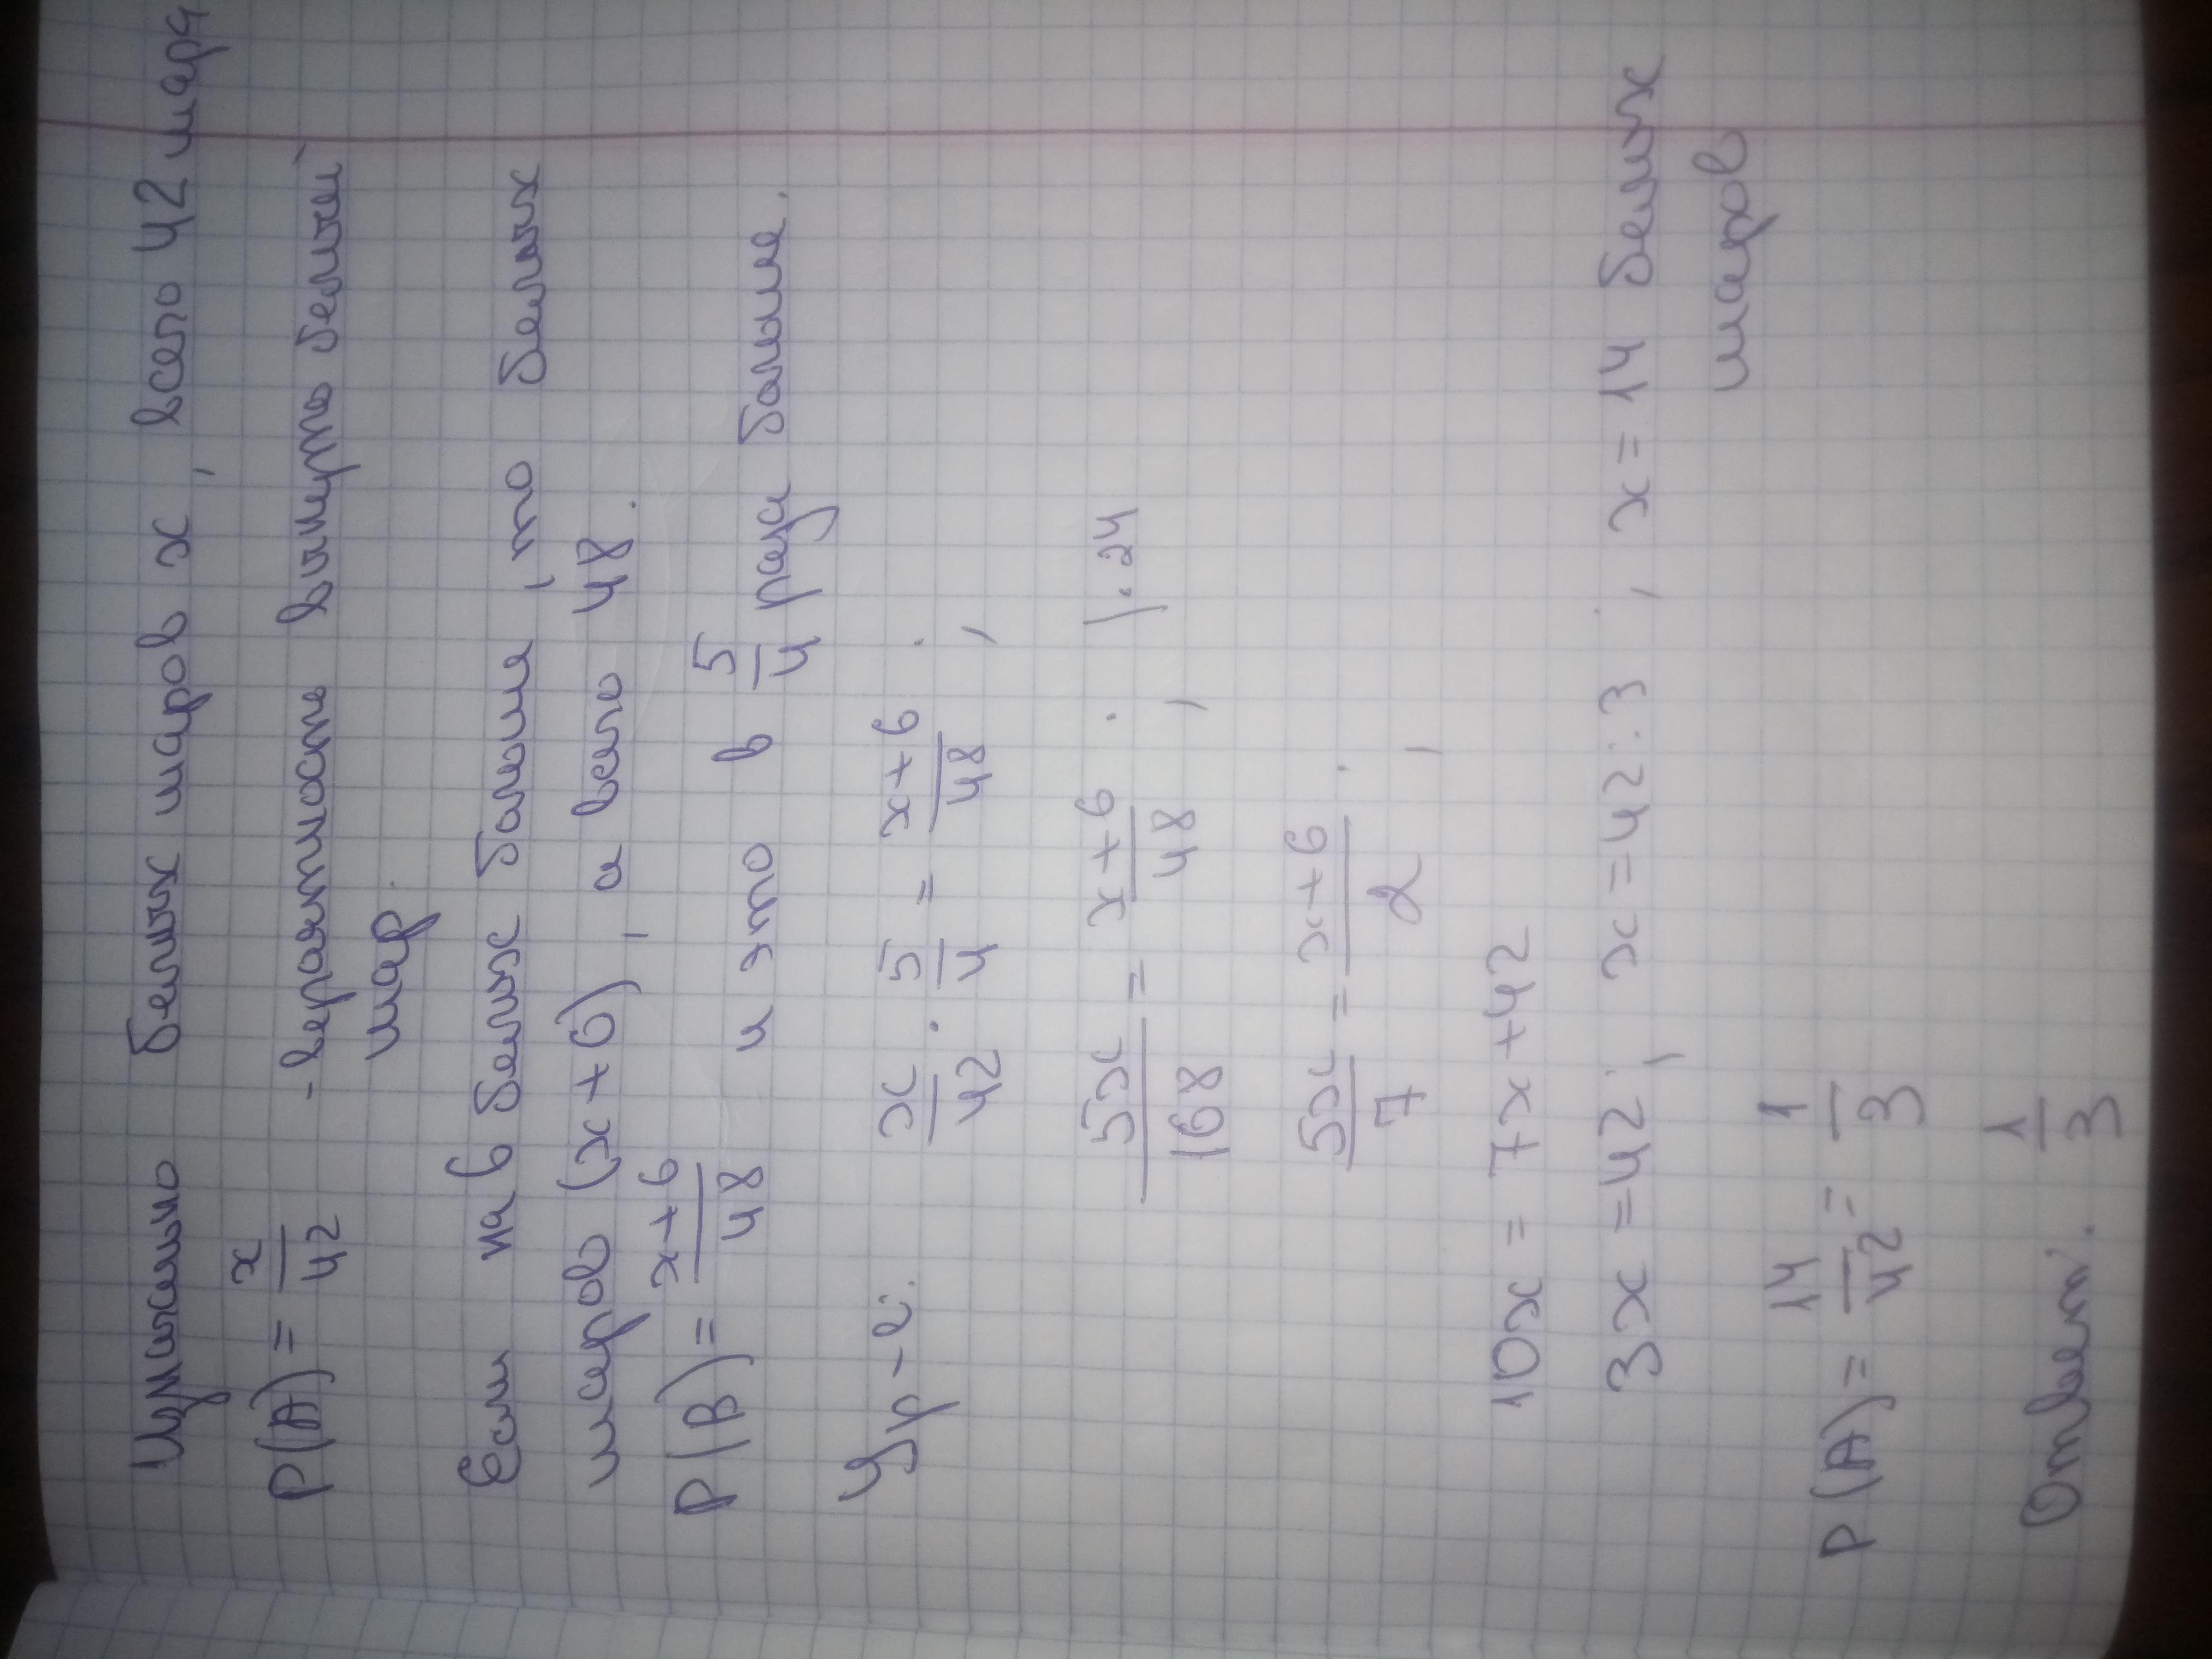 Изначально белых шаров x, всего 42 шара
P(A) = x/42 - вероятность вынуть белый
шар.
Если на 6 белых больше, то белых
шаров (x+6), а всего 48.
P(B) = x+6/48 и это в 5/4 раза больше.
Ур-е: x/42 · 5/4 = x+6/48;
5x/168 = x+6/48; |·24
5x/7 = x+6/2;
10x = 7x + 42
3x = 42; x = 42:3; x = 14 белых
шаров
P(A) = 14/42 = 1/3
Ответ: 1/3